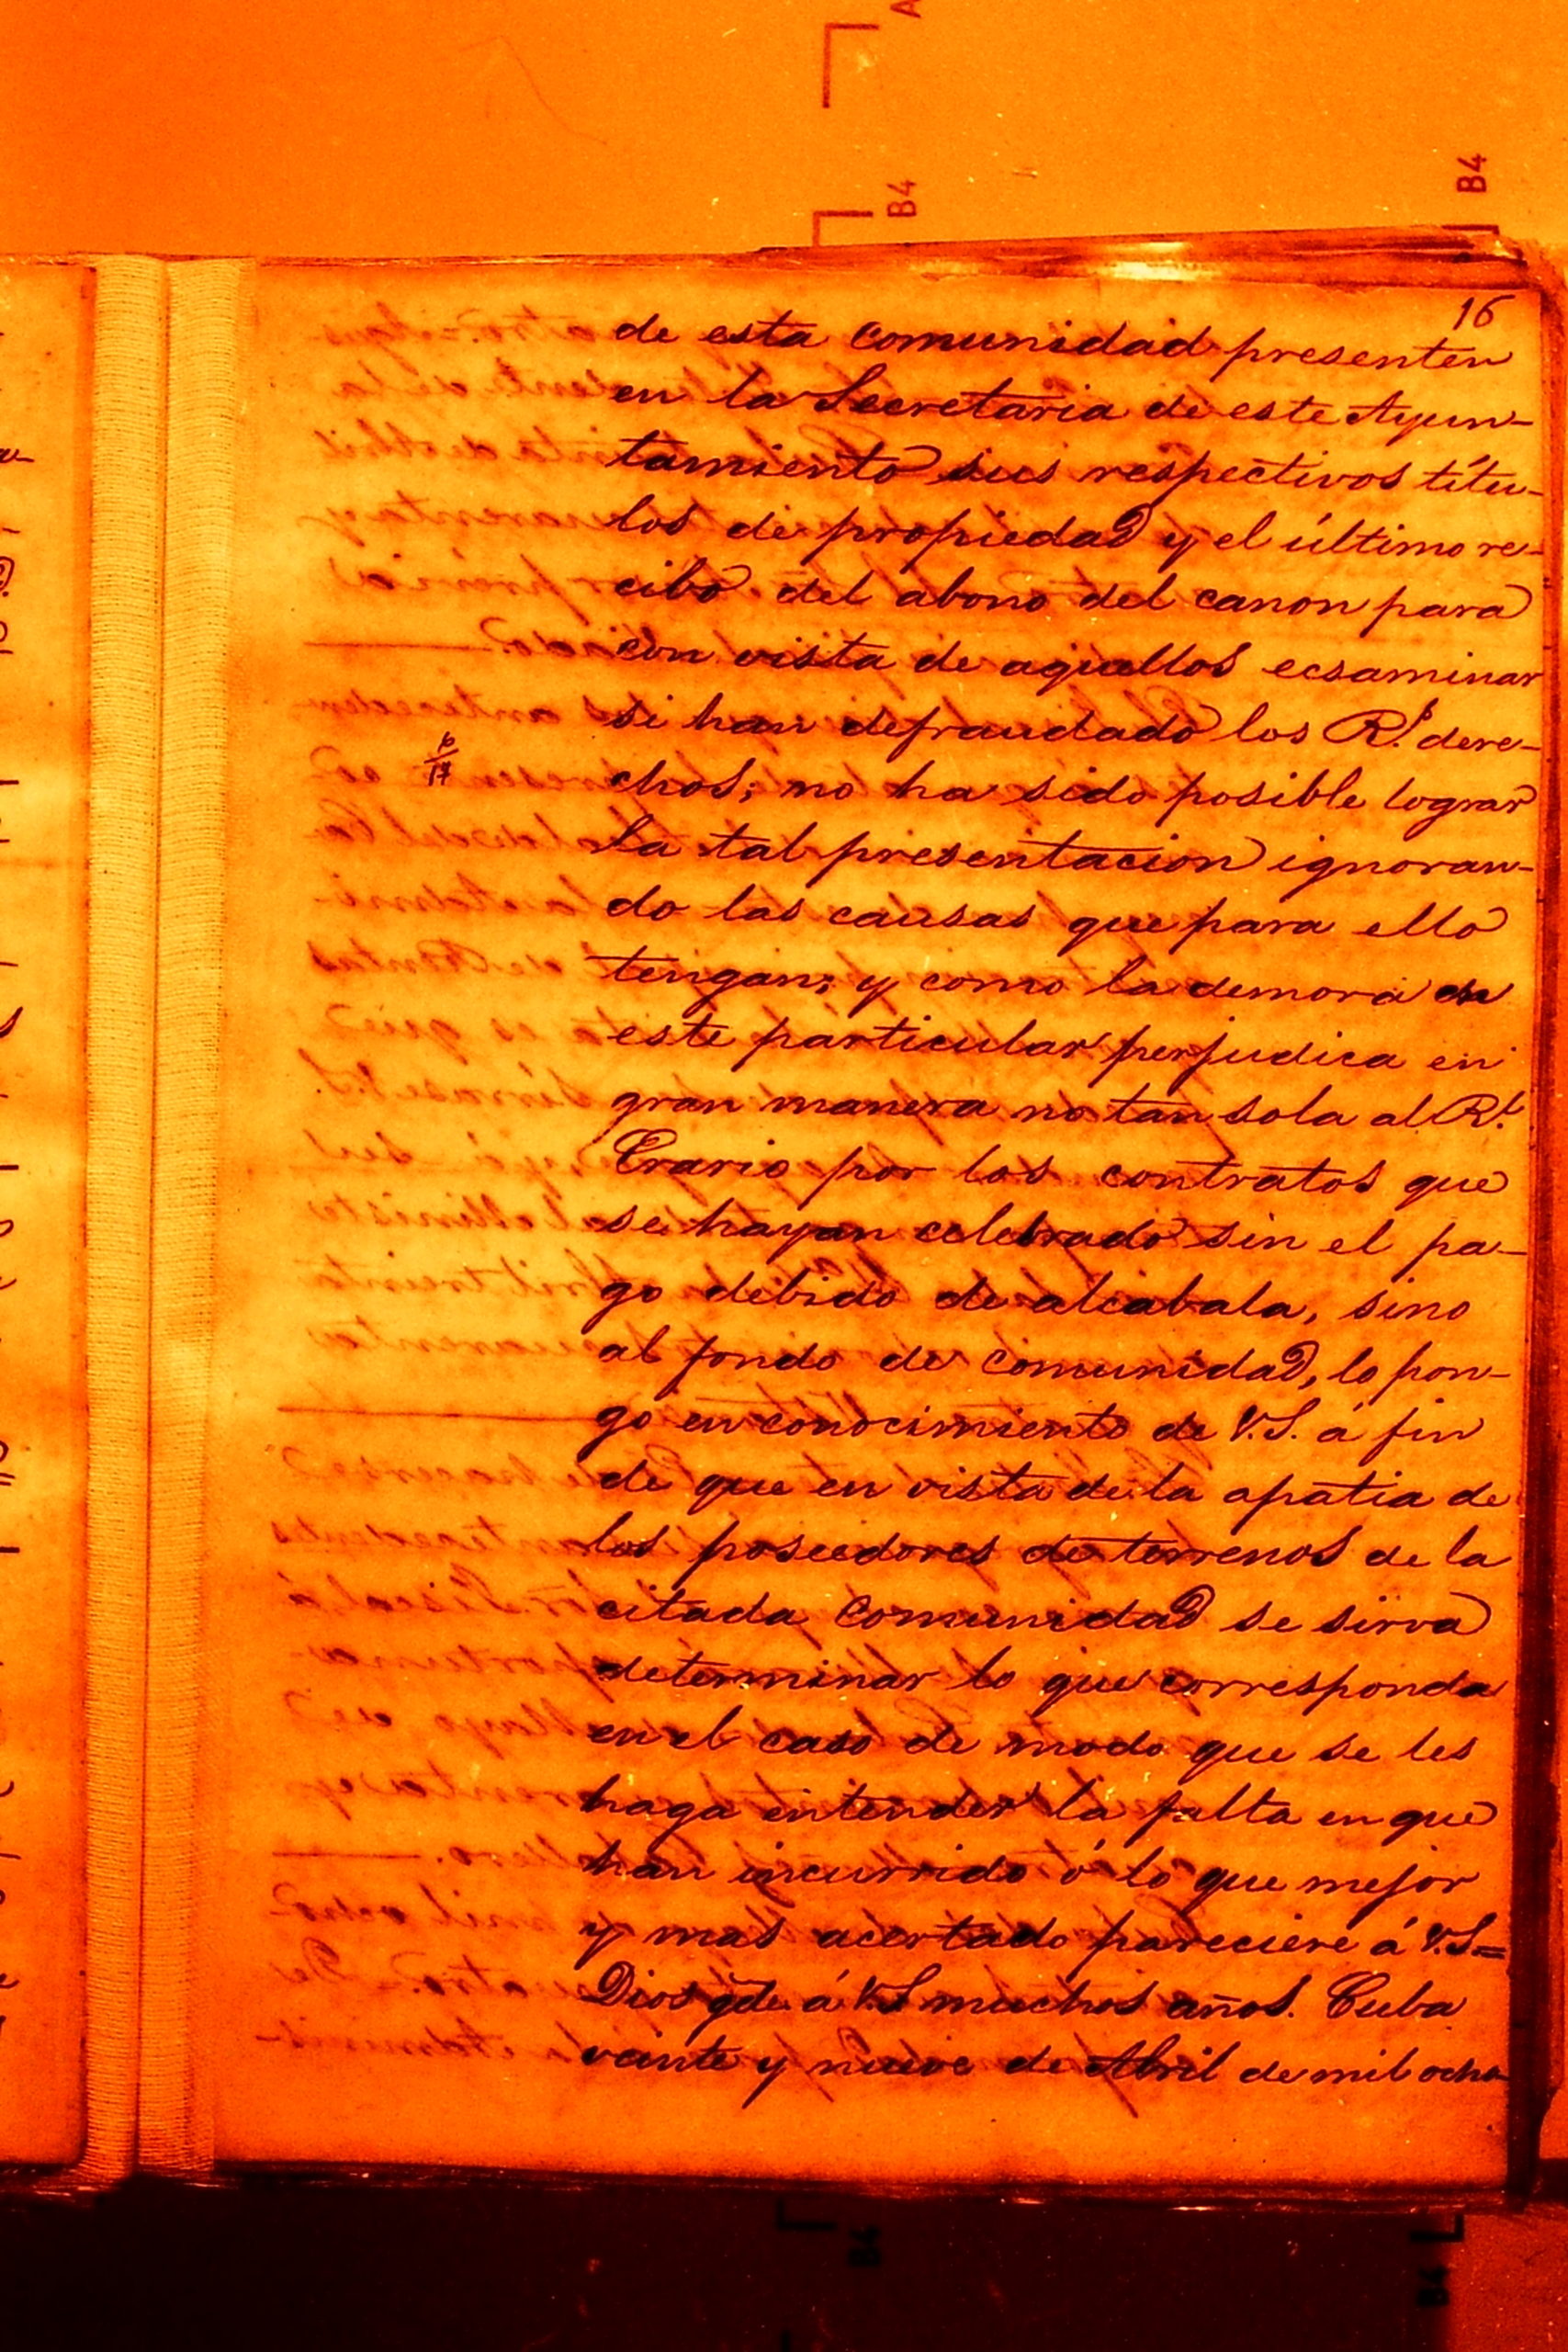 A
B4
B4
16
de esta comunidad presenten
en la Secretaria de este Ayun-
tamiento sus respectivos títu-
los de propiedad y el último re-
cibo del abono del canon para
con vista de aquellos ecsaminar
si han defraudado los R.^s dere-
chos; no ha sido posible lograr
la tal presentacion ignoran-
do las causas que para ello
tengan; y como la demora de
este particular perjudica en
gran manera no tan sola al R.^l
Erario por los contratos que
se hayan celebrado sin el pa-
go debido de alcabala, sino
al fondo de comunidad, lo pon-
go en conocimiento de V.S. á fin
de que en vista de la apatia de
los poseedores de terrenos de la
citada comunidad se sirva
determinar lo que corresponda
en el caso de modo que se les
haga entender la falta en que
han incurrido ó lo que mejor
y mas acertado pareciere á V.S.=
Dios gde á V.S. muchos años. Cuba
veinte y nueve de Abril de mil ocho-
B4
B4